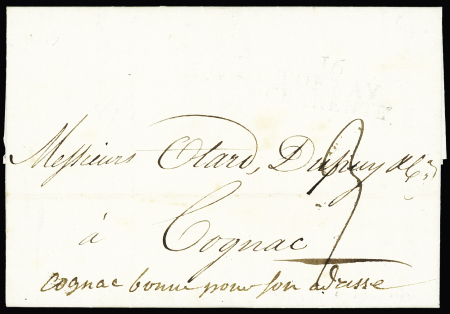 Messieurs Otard, Dupuy & Cie
à Cognac
3
Cognac bonne pour son adresse